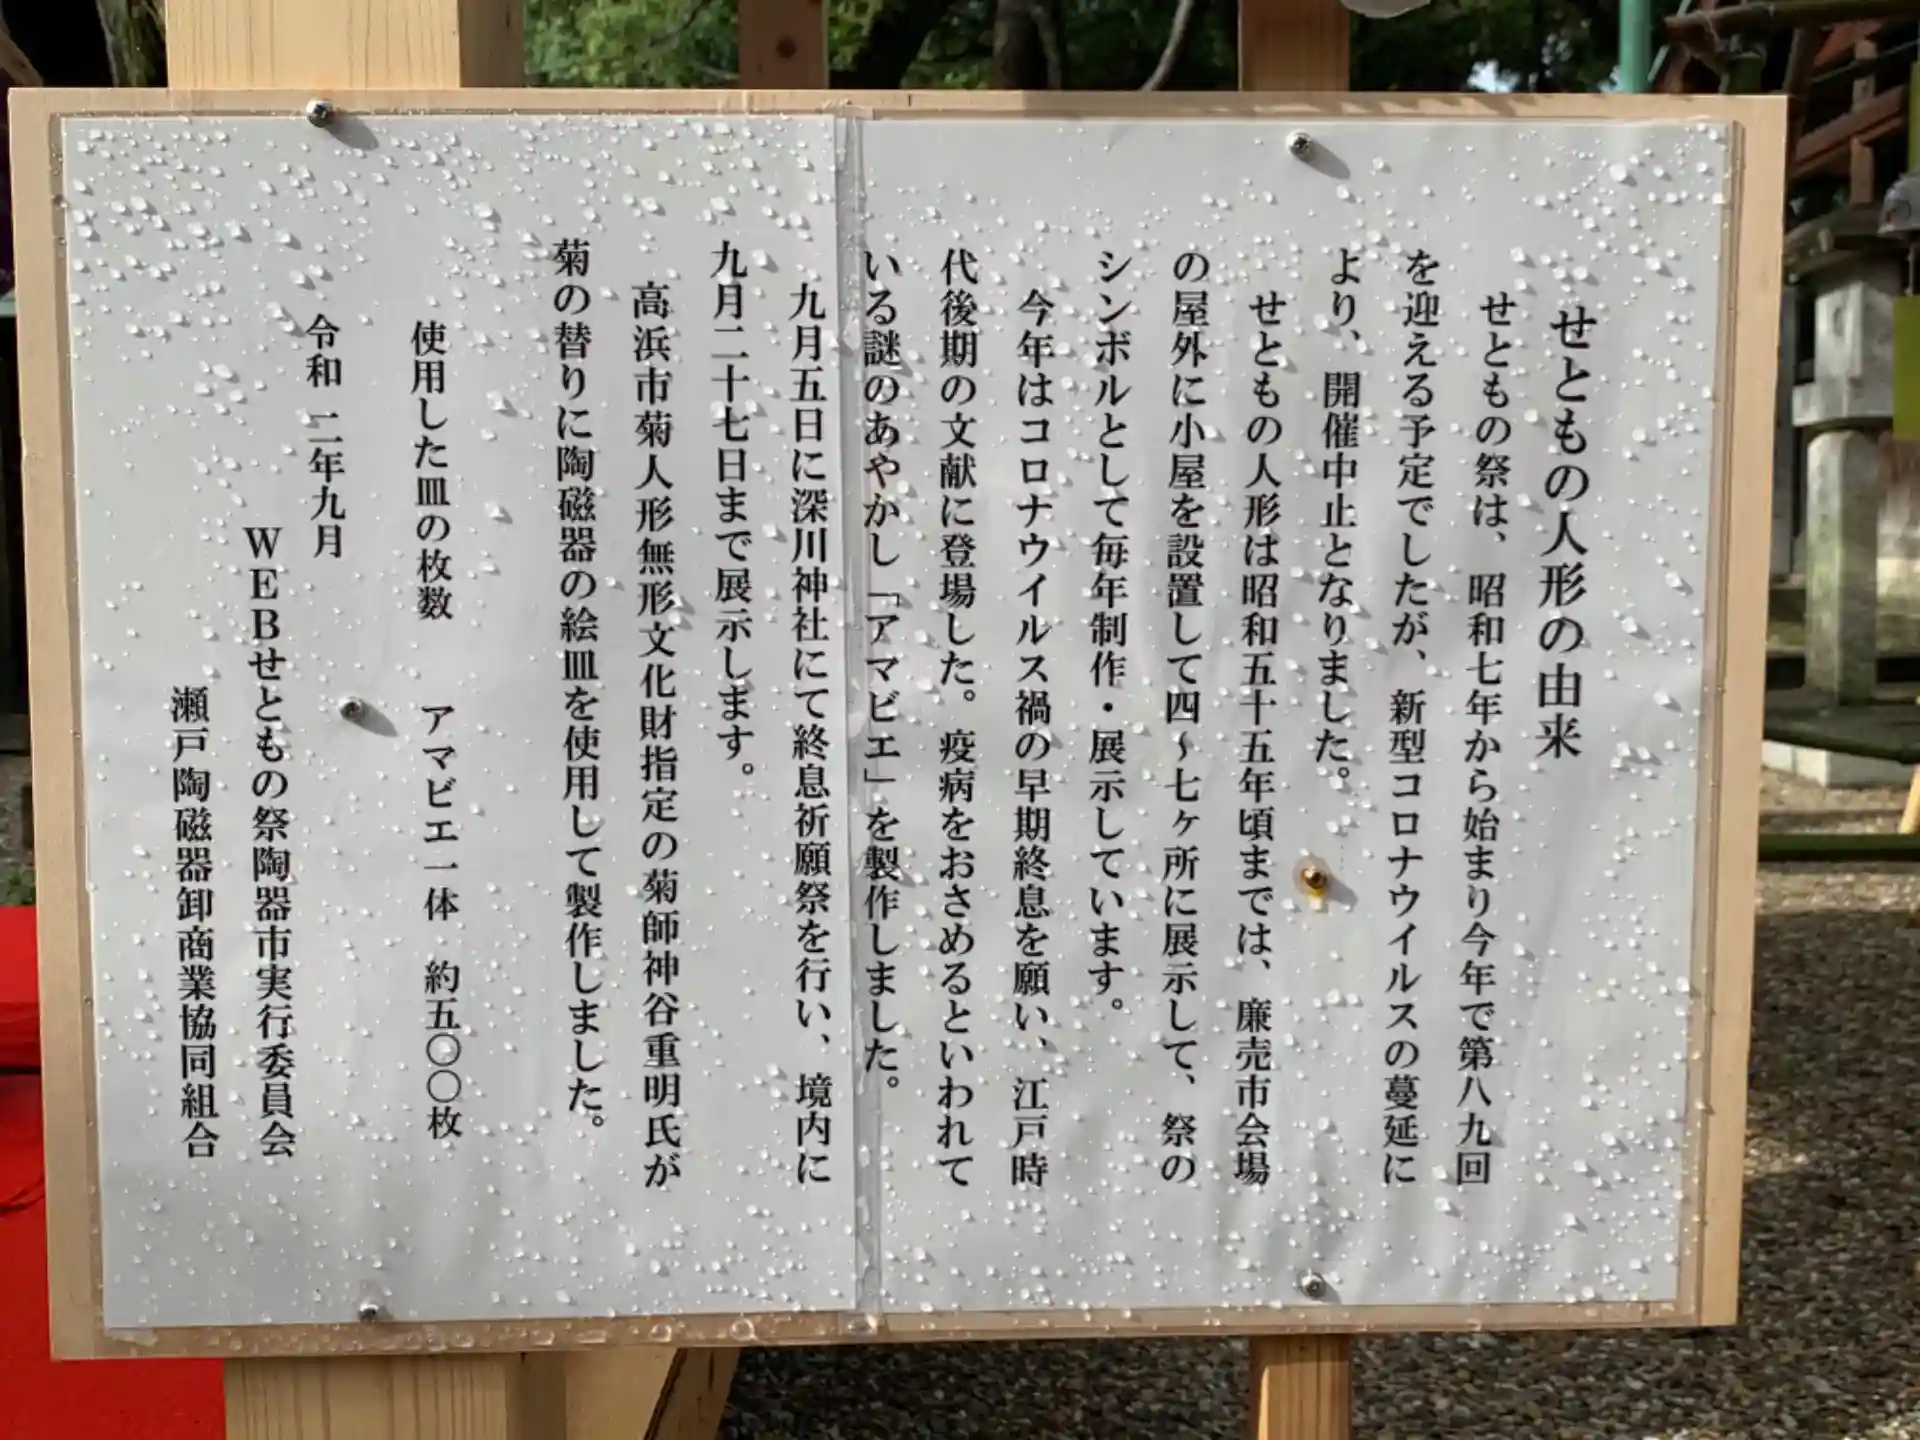 せともの人形の由来
せともの祭は、昭和七年から始まり今年で第八九回
を迎える予定でしたが、新型コロナウイルスの蔓延に
より、開催中止となりました。
せともの人形は昭和五十五年頃までは、廉売市会場
の屋外に小屋を設置して四～七ヶ所に展示して、祭の
シンボルとして毎年制作・展示しています。
今年はコロナウイルス禍の早期終息を願い、江戸時
代後期の文献に登場した。疫病をおさめるといわれて
いる謎のあやかし「アマビエ」を製作しました。
九月五日に深川神社にて終息祈願祭を行い、境内に
九月二十七日まで展示します。
高浜市菊人形無形文化財指定の菊師神谷重明氏が
菊の替りに陶磁器の絵皿を使用して製作しました。
使用した皿の枚数 アマビエ一体 約五〇〇枚
令和 二年九月
ＷＥＢせともの祭陶器市実行委員会
瀬戸陶磁器卸商業協同組合